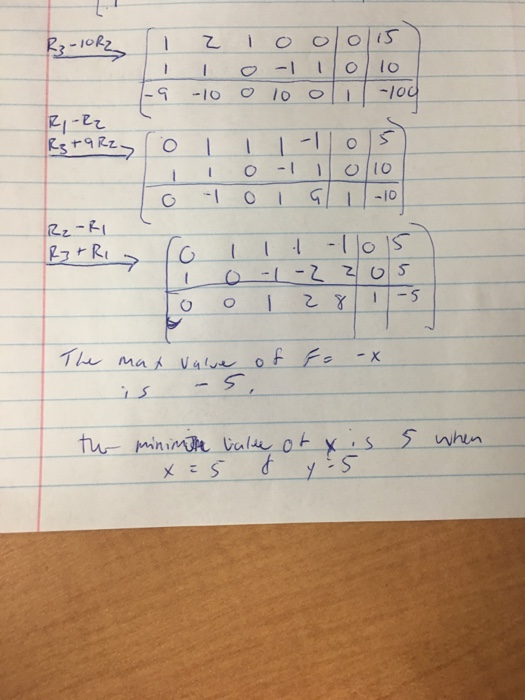 R3-10R2
1 2 1 0 0 0 15
1 1 0 -1 1 0 10
-9 -10 0 10 0 1 -100
R1-R2
R3+9R2
0 1 1 1 -1 0 5
1 1 0 -1 1 0 10
0 -1 0 1 9 1 -10
R2-R1
R3+R1
0 1 1 1 -1 0 5
1 0 -1 -2 2 0 5
0 0 1 2 8 1 -5
The max value of F= -x
is -5.
the value of x is 5 when
x = 5 & y = 5